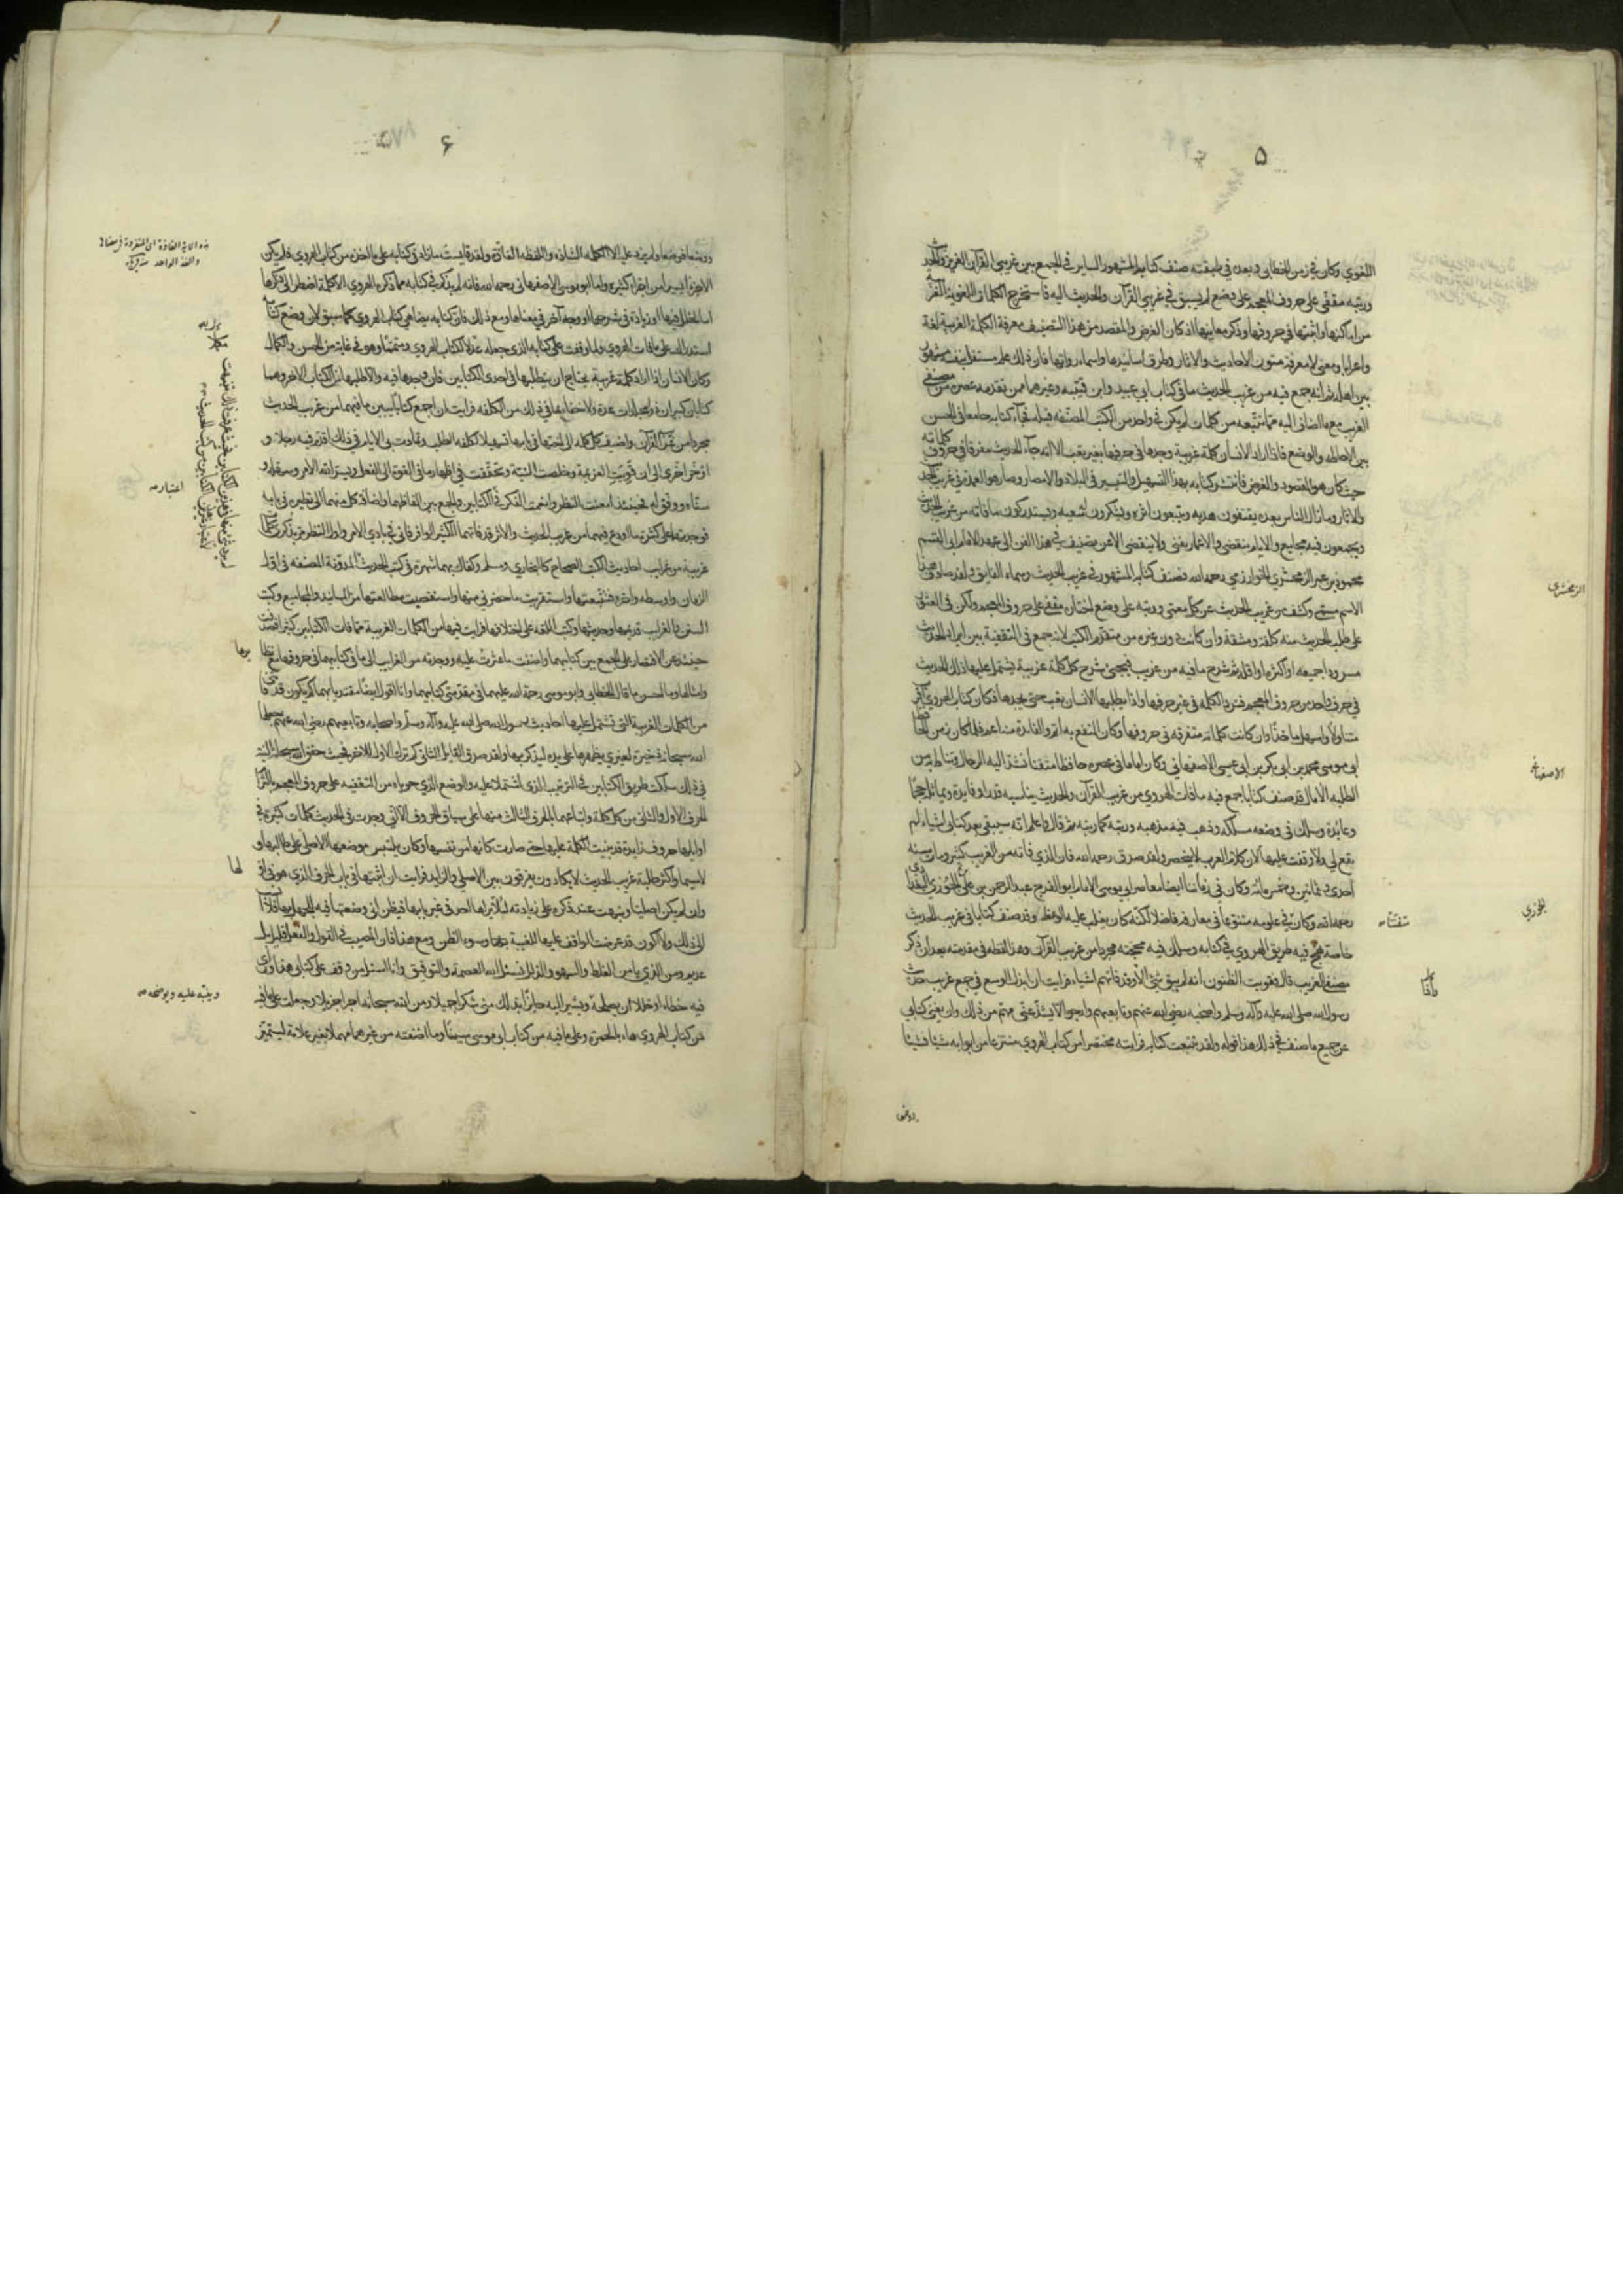 ۵
اللغوي وكان في زمن الخطابي وبعده في طبقته صنف كتابه المشهور الساير في الجمع بين غريبي القرآن العزيز والحديث
ورتبه مقفّى على حروف المعجم على وضع لم يسبق في غريبي القرآن والحديث اليه فاستخرج الكلمات اللغوية الغريبة
من اماكنها واثبتها في حروفها وذكر معانيها اذ كان الغرض والمقصد من هذا التصنيف معرفة الكلمة الغريبة لغة
واعرابا ومعنى لا معرفة متون الاحاديث والاثار وطرق اسانيدها واسماء رواتها فان ذلك علم مستقل بنفسه مشهور
بين اهله ثم انه جمع فيه من غريب الحديث ما في كتاب ابي عبيد وابن قتيبة وغيرهما ممن تقدمه عصره من مصنفي
الغريب مع ما اضاف اليه مما تتبعه من كلمات لم يكن في واحد من الكتب المصنفة قبله فجآء كتابه جامعا في الحسن
بين الاحاطه والوضع فاذا اراد الانسان كلمة غريبة وجدها في حرفها بغير تعب الا انه جآء الحديث مفرقا في حروف كلماته
حيث كان هو المقصود والغرض فانتشر كتابه بهذا التسهيل والتيسير في البلاد والامصار وصار هو العمدة في غريب الحديث
والاثار وما زال الناس بعده يقتفون هديه ويتبعون اثره ويشكرون له سعيه ويستدركون ما فاته من غريب الحديث
ويجمعون فيه مجاميع والايام تنقضي والاعمار تفنى ولا تنقضي الا عن تصنيف في هذا الفن الى عهد الامام ابي القسم
محمود بن عمر الزمخشري الخوارزمي رحمه الله فصنف كتابه المشهور في غريب الحديث وسماه الفايق ولقد صادف هذا
الاسم مسمى وكشف من غريب الحديث عن كل معمى ورتبه على وضع اختاره مقفى على حروف المعجم ولكن في العثور
على طلب الحديث منه كلفة ومشقة وان كانت دون غيره من متقدم الكتب لانه جمع في التقفية بين ايراد الحديث
مسرودا جميعه او اكثره او اقله ثم شرح ما فيه من غريب فيجئ شرح كل كلمة غريبة يشتمل عليها ذلك الحديث
في حرف واحد من حروف المعجم فترد الكلمة في غير حرفها واذا يطلبها الانسان تعب حتى يجدها فكان كتاب الهروي اقرب
متناولاً واسهل ماخذًا وان كانت كلماته متفرقه في حروفها وكان النفع به اتم والفايدة منه اعم فلما كان زمن الحافظ
ابي موسى محمد بن ابي بكر بن ابي عيسى الاصفهاني وكان اماما في عصره حافظا متقنا تشد اليه الرحال وتناط به من
الطلبه الآمال قد صنف كتابا جمع فيه ما فات الهروي من غريب القرآن والحديث يناسبه قدرا وفايدة ويماثله حجمًا
وعائدة وسلك في وضعه مسلكه وذهب فيه مذهبه ورتبه كما رتبه ثم قال واعلم انه سيبقى بعد كتابي اشياء لم
تقع لي ولا وقفت عليها لان كلام العرب لا ينحصر ولقد صدق رحمه الله فان الذي فاته من الغريب كثير ومات سنه
احدى وثمانين وخمس مائه وكان في زماننا ايضا معاصر ابي موسى الامام ابو الفرج عبد الرحمن بن علي الجوزي البغدادي
رحمه الله وكان في علومه متنوعا في معارفه فاضلا لكنّه كان يغلب عليه الوعظ وقد صنف كتابا في غريب الحديث
خاصة نهج فيه طريق الهروي في كتابه وسلك فيه محجته مجردا من غريب القرآن وهذا لفظه في مقدمته بعد ان ذكر
مصنفي الغريب قال وقويت الظنون انه لم يبق شئ الا وقد فاتهم اشياء فرايت ان ابذل الوسع في جمع غريب حديث
رسول الله صلى الله عليه وآله وسلم واصحبه رضي الله عنهم وتابعيهم وارجو الا يشذّ عنّي مهم من ذلك وان يغني كتابي
عن جميع ما صنف في ذلك هذا قوله ولقد تتبعت كتابه فرايته مختصرا من كتاب الهروي منتزعا من ابوابه شيئا فشيئا
الزمخشري
الاصفهاني
الجوزي
۶
ووضعا فوضعا ولم يزد عليه الا الكلمة الشاذه واللفظه الفاذّة ولقد قايست ما زاد في كتابه على ما اخذه من كتاب الهروي فلم يكن
الا جزءًا يسيرا من اجزاء كثيره واما ابو موسى الاصفهاني رحمه الله فانه لم يذكر في كتابه مما ذكره الهروي الا كلمة اضطر الى ذكرها
اما لخلل فيها او زيادة في شرحها او وجه آخر في معناها ومع ذلك فان كتابه يضاهي كتاب الهروي كما سبق لان وضع كتابه
استدراك على ما فات الهروي ولما وقفت على كتابه الذي جعله مكملا لكتاب الهروي ومتمما وهو في غاية من الحسن والكمال
وكان الانسان اذا اراد كلمة غريبة يحتاج ان يتطلبها في احدى الكتابين فان وجدها فيه والا طلبها من الكتاب الاخر وهما
كتابان كبيران ذوا مجلدات عدة ولا خفاء بما في ذلك من الكلفة فرايت ان اجمع كتابا بين ما فيهما من غريب الحديث
مجردا من غريب القرآن واضيف كل كلمة الى اختها في بابها تسهيلا لكلفة الطلب وتمادت بي الايام في ذلك اقدّم فيه رجلا و
اؤخّر اخرى الى ان قويت العزيمة وخلصت النية وتحققت في اظهار ما في القوة الى الفعل ويسر الله الامر وسهله و
سنّاه ووفق له فحينئذ امعنت النظر وانعمت الفكر في الكتابين والجمع بين الفاظهما واضافة كل منهما الى نظيره في بابه
فوجدتهما على كثرة ما اودع فيهما من غريب الحديث والاثر قد فاتهما الكثير الوافر فاني في بادي الامر واول النظر مرّ بذكري كلمات
غريبة من غرايب احاديث الكتب الصحاح كالبخاري ومسلم وكفاك بهما شهرة في كتب الحديث المدونة المصنفه في اول
الزمان واوسطه واخره فتتبعتها واستقريت ما حضرني منها واستقصيت مطالعتها من المسانيد والمجاميع وكتب
السنن والغرايب قديمها وحديثها وكتب اللغة على اختلافها فرايت فيها من الكلمات الغريبة مما فات الكتابين كثيرا فصدفت
حينئذ عن الاقتصار على الجمع بين كتابيهما واضفت ما عثرت عليه ووجدته من الغرايب الى ما في كتابيهما في حروفها مع نظايرها
وامثالها وما احسن ما قال الخطابي وابو موسى رحمة الله عليهما في مقدمتي كتابيهما وانا اقول ايضا مقتديا بهما كم يكون قد فاتني
من الكلمات الغريبة التي تشتمل عليها احاديث رسول الله صلى الله عليه وآله وسلم واصحابه وتابعيهم رضي الله عنهم جعلها
الله سبحانه ذخيرة لغيري يظهرها على يده ليذكر بها ولقد صدق القايل الثاني كم ترك الاول للاخر فحيث حقق الله سبحانه النية
في ذلك سلكت طريق الكتابين في الترتيب الذي اشتملا عليه والوضع الذي حوياه من التقفيه على حروف المعجم بالتزام
الحرف الاول والثاني من كل كلمة واتباعهما بالحرف الثالث منها على سياق الحروف الا اني وجدت في الحديث كلمات كثيرة في
اوايلها حروف زايدة قد بنيت الكلمة عليها حتى صارت كانها من نفسها وكان يلتبس موضعها الاصلي على طالبها و
لاسيما واكثر طلبة غريب الحديث لا يكادون يفرقون بين الاصلي والزايد فرايت ان اثبتها في باب الحرف الذي هو في اولها
وان لم يكن اصليا ونبهت عند ذكره على زيادته لئلا يراها احد في غير بابها فيظن اني وضعتها فيه للجهل بها فلا انسب
الى ذلك ولا اكون قد عرضت الواقف عليها للغيبة وسوء الظن ومع هذا فان المصيب في القول والفعل قليل بل
عديم ومن الذي يامن الغلط والسهو والزلل نسئل الله العصمة والتوفيق وانا اسئل من وقف على كتابي هذا وراى
فيه خطاء او خللا ان يصلحه ويشير اليه حائزًا بذلك مني شكرا جميلا ومن الله سبحانه اجرا جزيلا وجعلت على ما فيه
من كتاب الهروي هاء بالحمرة وعلى ما فيه من كتاب ابي موسى سينًا وما اضفته من غيرهما مهملا بغير علامة ليتميّز
وينبّه عليه ويوضحه